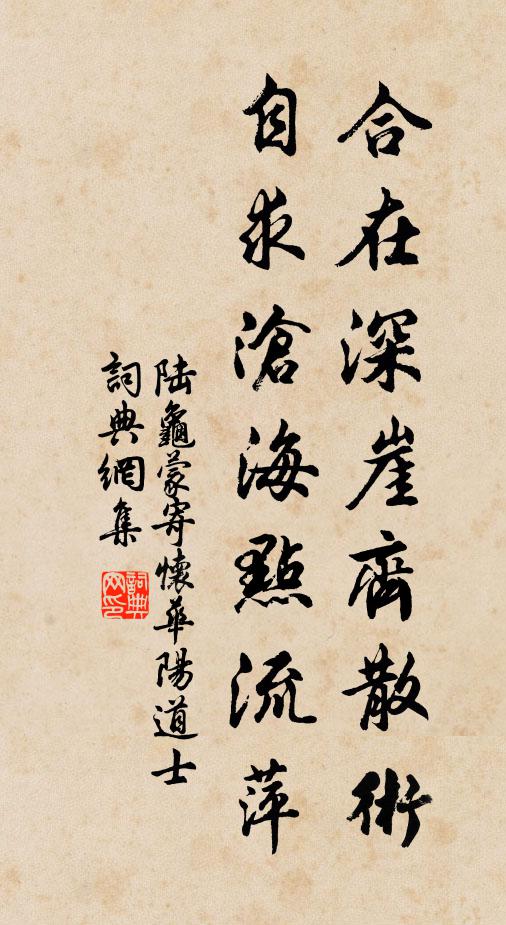 合在深崖齊散術
自求滄海點流萍
陸龜蒙寄懷華陽道士
詞典網集
詞典網印